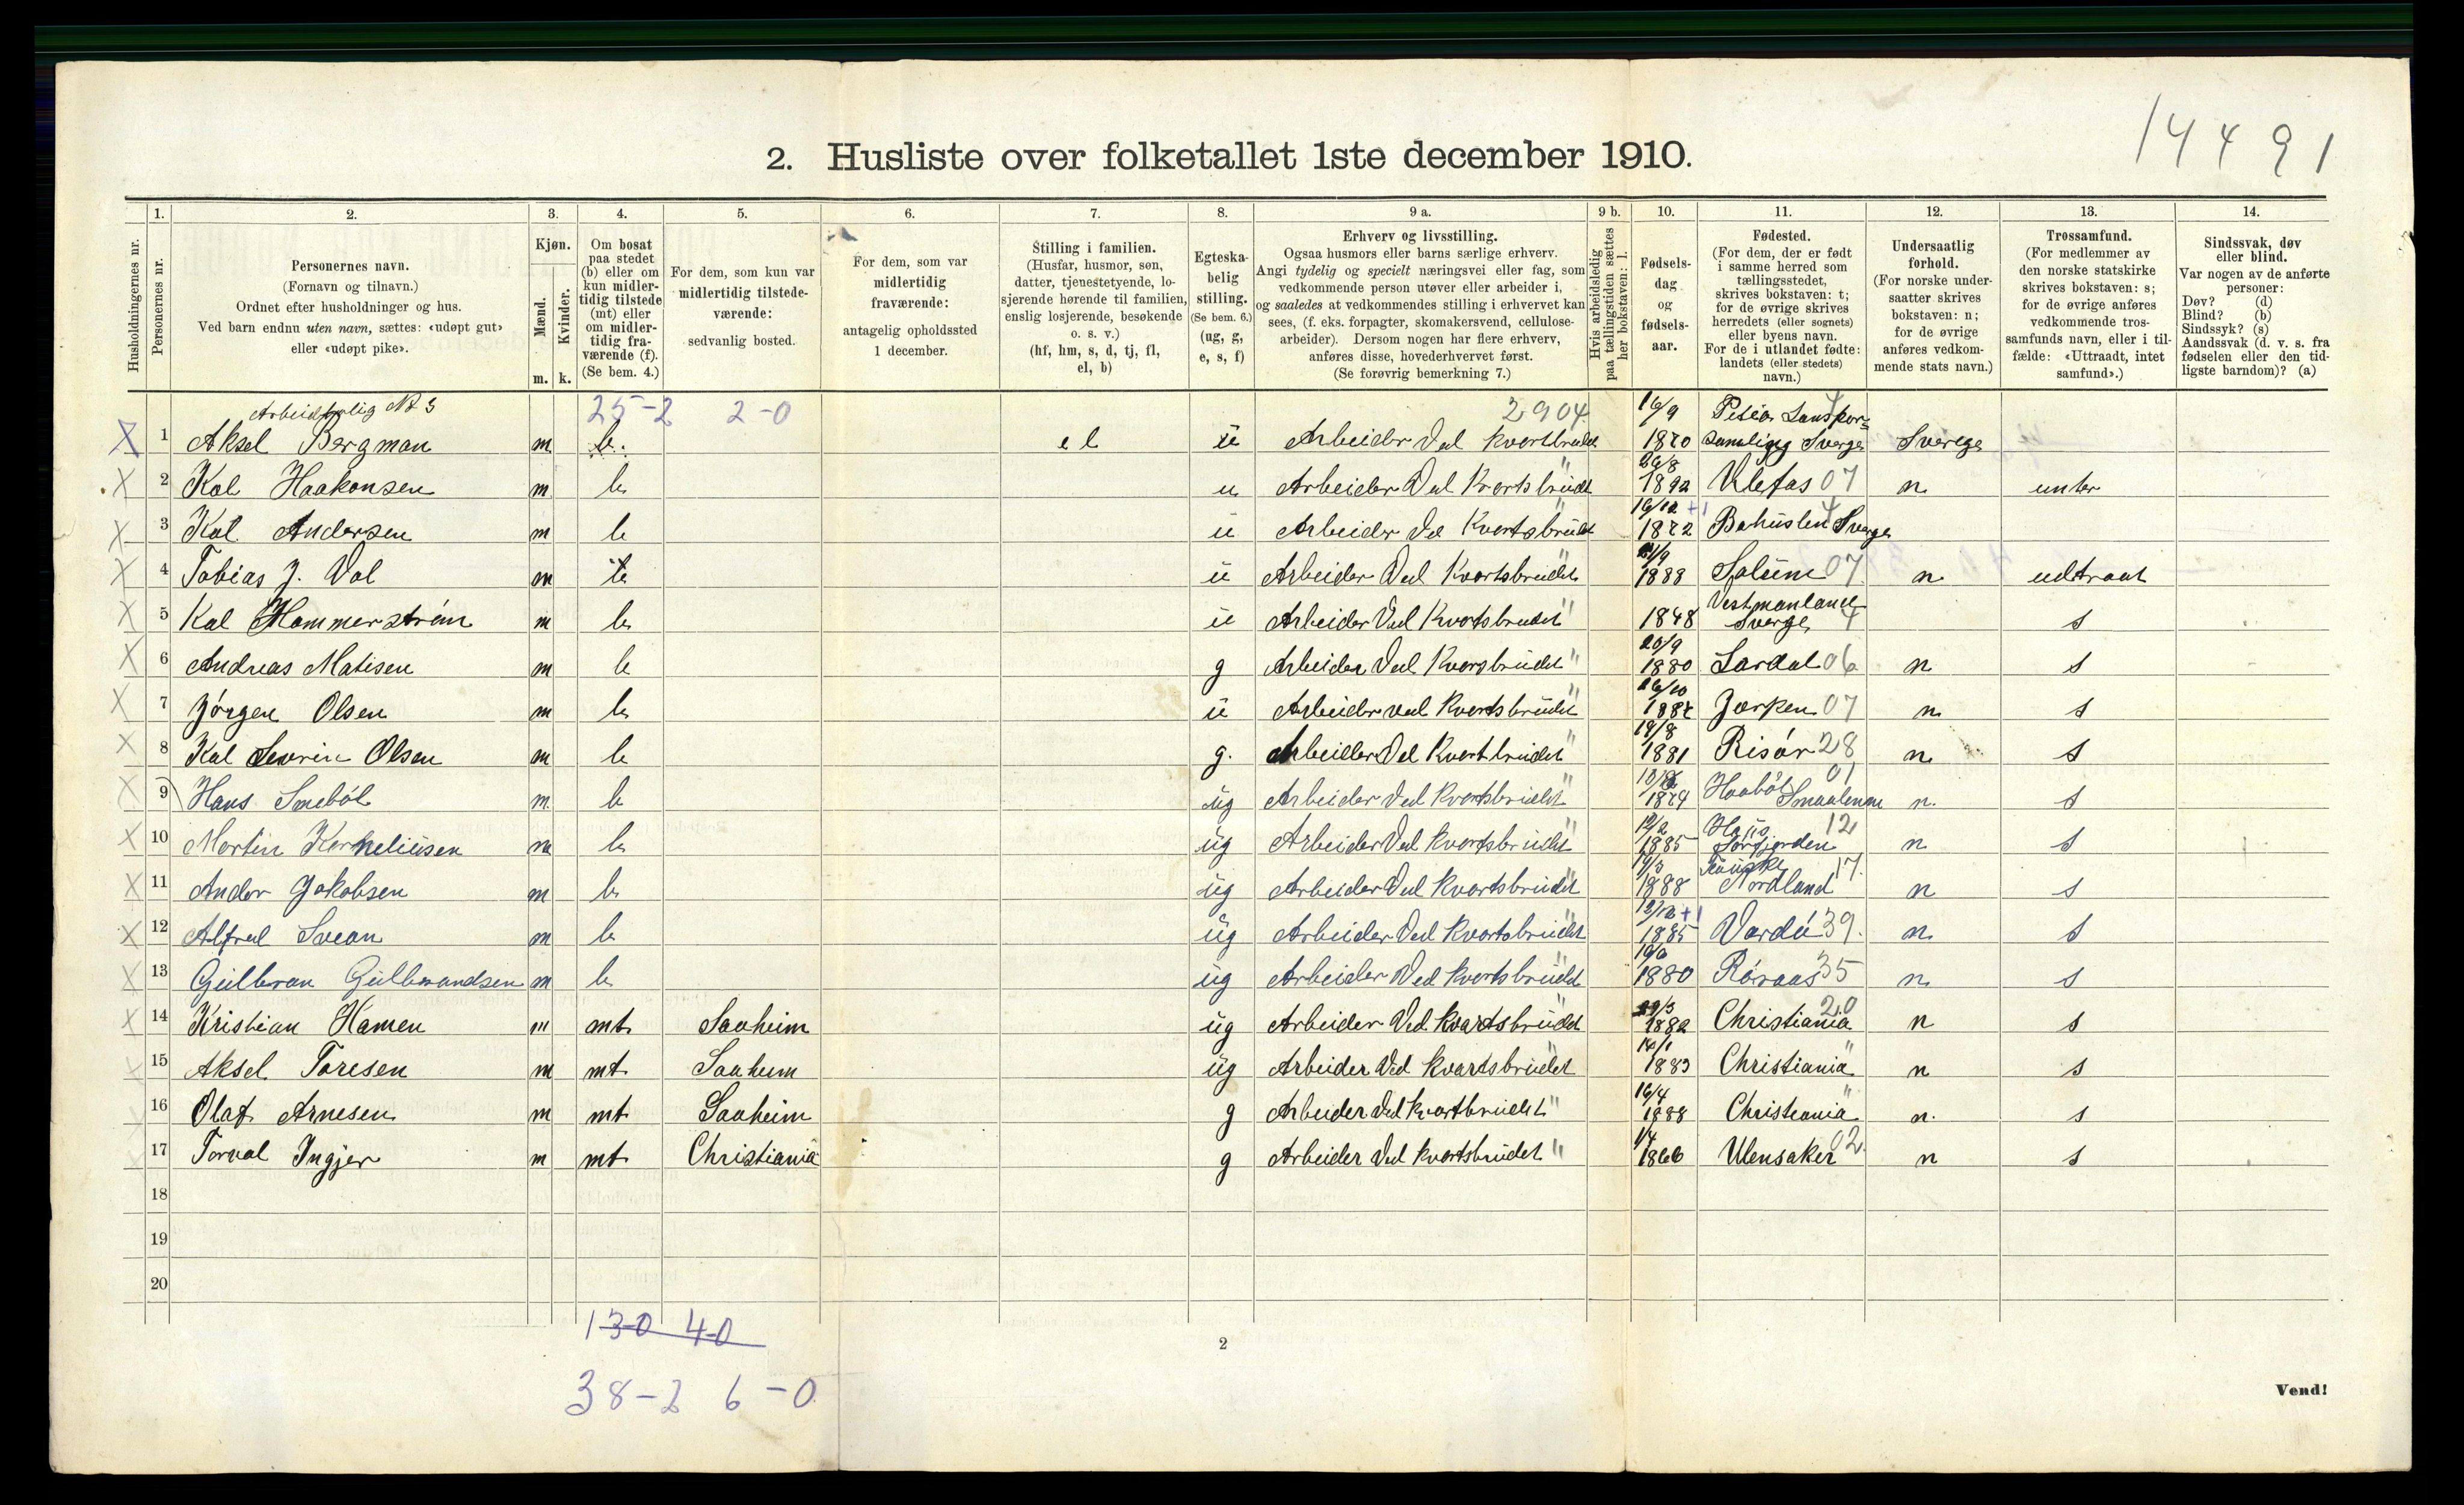 14491
2. Husliste over folketallet 1ste december 1910.
Husholdningernes nr.
1.
Personernes nr.
2.
Personernes navn.
(Fornavn og tilnavn.)
Ordnet efter husholdninger og hus.
Ved barn endnu uten navn, sættes: «udøpt gut»
eller «udøpt pike».
3.
Kjøn.
Mænd.
Kvinder.
m. k.
4.
Om bosat
paa stedet
(b) eller om
kun midler-
tidig tilstede
(mt) eller
om midler-
tidig fra-
værende (f).
(Se bem. 4.)
5.
For dem, som kun var
midlertidig tilstede-
værende:
sedvanlig bosted.
6.
For dem, som var
midlertidig
fraværende:
antagelig opholdssted
1 december.
7.
Stilling i familien.
(Husfar, husmor, søn,
datter, tjenestetyende, lo-
sjerende hørende til familien,
enslig losjerende, besøkende
o. s. v.)
(hf, hm, s, d, tj, fl,
el, b)
8.
Egteska-
belig
stilling.
(Se bem. 6.)
(ug, g,
e, s, f)
9 a.
Erhverv og livsstilling.
Ogsaa husmors eller barns særlige erhverv.
Angi tydelig og specielt næringsvei eller fag, som
vedkommende person utøver eller arbeider i,
og saaledes at vedkommendes stilling i erhvervet kan
sees, (f. eks. forpagter, skomakersvend, cellulose-
arbeider). Dersom nogen har flere erhverv,
anføres disse, hovederhvervet først.
(Se forøvrig bemerkning 7.)
9 b.
Hvis arbeidsledig
paa tællingstiden sættes
her bokstaven: l.
10.
Fødsels-
dag
og
fødsels-
aar.
11.
Fødested.
(For dem, der er født
i samme herred som
tællingsstedet,
skrives bokstaven: t;
for de øvrige skrives
herredets (eller sognets)
eller byens navn.
For de i utlandet fødte:
landets (eller stedets)
navn.)
12.
Undersaatlig
forhold.
(For norske under-
saatter skrives
bokstaven: n;
for de øvrige
anføres vedkom-
mende stats navn.)
13.
Trossamfund.
(For medlemmer av
den norske statskirke
skrives bokstaven: s;
for de øvrige anføres
vedkommende tros-
samfunds navn, eller i til-
fælde: «Uttraadt, intet
samfund».)
14.
Sindssvak, døv
eller blind.
Var nogen av de anførte
personer:
Døv? (d)
Blind? (b)
Sindssyk? (s)
Aandssvak (d. v. s. fra
fødselen eller den tid-
ligste barndom)? (a)
25-2 2-0 2904
X 1 Aksel Bergman m b. el u Arbeider Ved kvartsbrudet 16/9 Sverge Sverige
X 2 Kal Haakonsen m b u Arbeider Ved Kvartsbrudt 1892 Ulefos 07 n
X 3 Kal Andersen m b u Arbeider Ved Kvartsbrudt +1 Bahuslen Sverge
X 4 Tobias J. Dal m b u Arbeider Ved Kvartsbrudet 1888 Solum 07 n udtraat
X 5 Kal Hammerström m b u Arbeider Ved Kvartsbrudet 1848 Vestmanland Sverge 4 s
X 6 Andreas Matisen m b g Arbeider Ved Kvarsbrudet " 20/9 1880 Lardal 06 n s
X 7 Jørgen Olsen m b u Arbeider ved Kvartsbrudet " 26/10 07 n s
X 8 Kal Severin Olsen m b g. Arbeider Ved Kvartbrudet " 18/8 1881 Risör 28 n s
X 9 Hans m b ug Arbeider Ved kvartsbrudet " Haaböl Smaalenene 01 n. s
X 10 Martin Korneliusen m b ug Arbeider Ved kvartsbrudet " 12/2 1885 12 n s
X 11 Ander Jakobsen m b ug Arbeider Ved kvartsbrudet " 1888 Nordland 17. n s
X 12 Alfred Svean m b ug Arbeider Ved kvartsbrudet " 12/12 +1 1885 Vardö 39. n s
X 13 Gulbran Gulbrandsen m b ug Arbeider Ved kvartsbrudet " 1880 Röraas 35 n s
X 14 Kristian Hamen m mt Saaheim ug Arbeider Ved kvartsbrudet " 1882 Christiania 20 n s
X 15 Aksel Toresen m mt Saaheim ug Arbeider Ved kvartsbrudet " 1883 Christiania " n s
16 Olaf Arnesen m mt Saaheim g Arbeider Ved kvartbrudet " 16/4 1888 Christiania " n. s
17 Torval Ingjer m mt Christiania g Arbeider Ved kvartsbrudet " 1/4 1866 Ulensaker 02 n s
18
19
20
130 40
38-2 6-0
2
Vend!